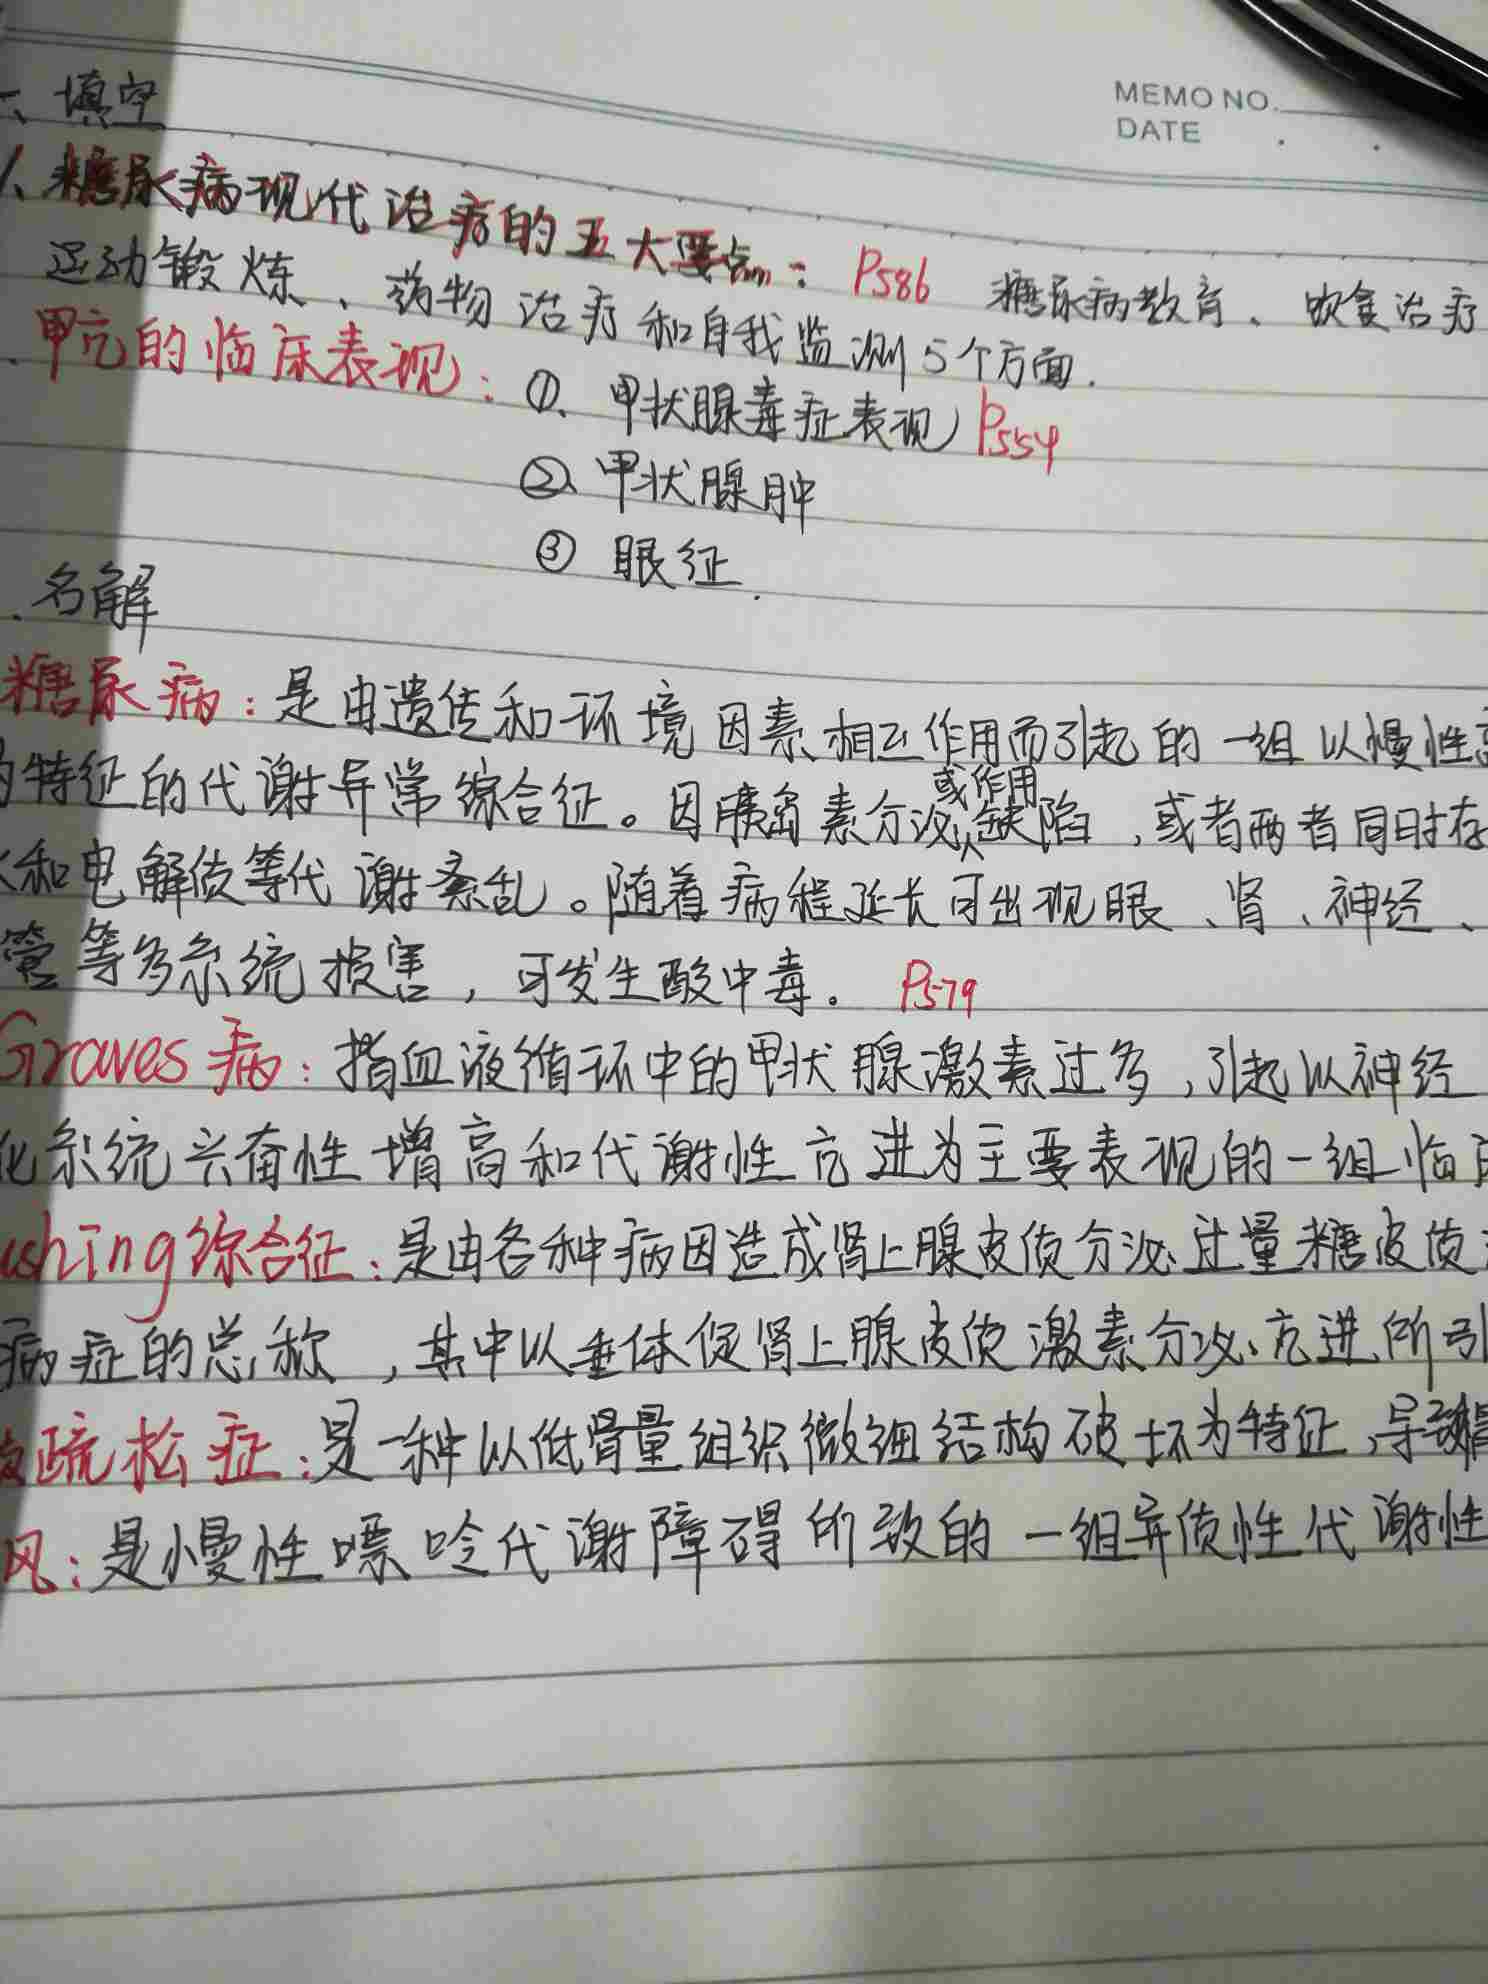 MEMO NO.
DATE
一、填空
1、糖尿病现代治疗的五大要点：P586 糖尿病教育、饮食治疗
运动锻炼、药物治疗和自我监测5个方面.
甲亢的临床表现：①、甲状腺毒症表现 P554
②、甲状腺肿
③ 眼征.
名解
糖尿病：是由遗传和环境因素相互作用而引起的一组以慢性
特征的代谢异常综合征。因胰岛素分泌或作用缺陷，或者两者同时存
和电解质等代谢紊乱。随着病程延长可出现眼、肾、神经、
管等多系统损害，可发生酸中毒。P579
Graves病：指血液循环中的甲状腺激素过多，引起以神经
化系统兴奋性增高和代谢性亢进为主要表现的一组临
ushing综合征：是由各种病因造成肾上腺皮质分泌过量糖皮质
病症的总称，其中以垂体促肾上腺皮质激素分泌亢进所引
疏松症：是一种以低骨量组织微细结构破坏为特征，导致
风：是慢性嘌呤代谢障碍所致的一组异质性代谢性